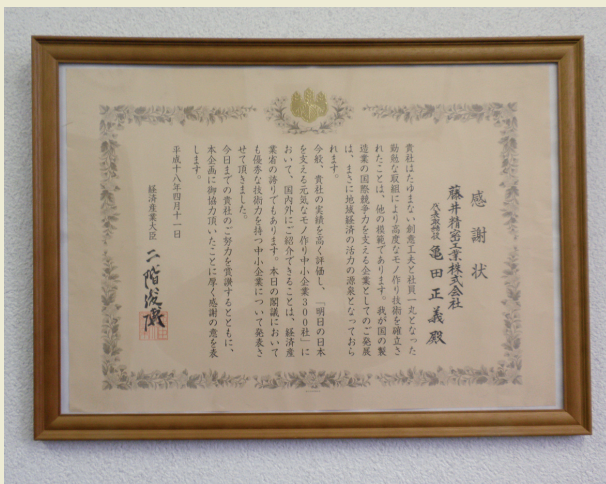 感謝状
藤井精密工業株式会社
代表取締役 亀田正義殿
貴社はたゆまない創意工夫と社員一丸となった
勤勉な取組により高度なモノ作り技術を確立さ
れたことは、他の模範であります。我が国の製
造業の国際競争力を支える企業としてのご発展
は、まさに地域経済の活力の源泉となっておら
れます。
今般、貴社の実績を高く評価し、「明日の日本
を支える元気なモノ作り中小企業300社」に
おいて、国内外にご紹介できることは、経済産
業省の誇りでもあります。本日の閣議において
も優秀な技術力を持つ中小企業について発表さ
せて頂きました。
今日までの貴社のご努力を賞讃するとともに、
本企画に御協力頂いたことに厚く感謝の意を表
します。
平成十八年四月十一日
経済産業大臣 二階俊博